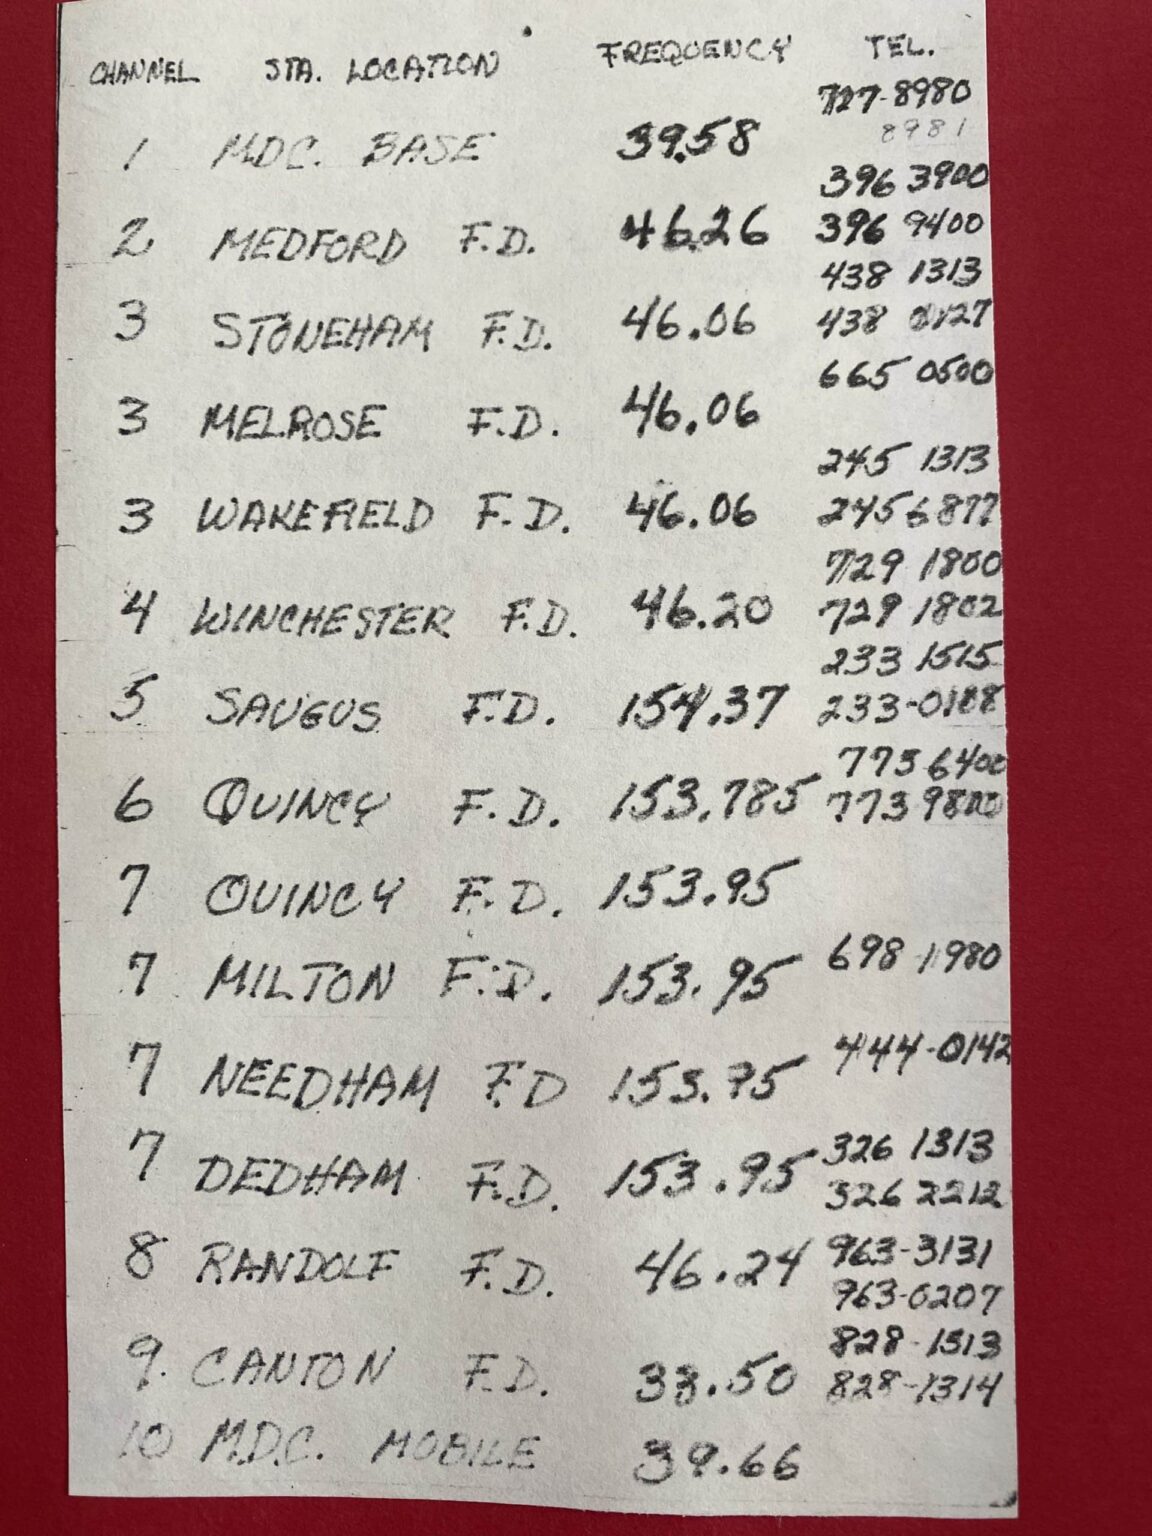 CHANNEL STA. LOCATION FREQUENCY TEL.
727-8980
1 M.D.C. BASE 39.58 8981
396 3900
2 MEDFORD F.D. 46.26 396 9400
438 1313
3 STONEHAM F.D. 46.06 438 0127
665 0500
3 MELROSE F.D. 46.06
245 1313
3 WAKEFIELD F.D. 46.06 245 6877
729 1800
4 WINCHESTER F.D. 46.20 729 1802
233 1515
5 SAUGUS F.D. 154.37 233-0188
773 6400
6 QUINCY F.D. 153.785 773 9800
7 QUINCY F.D. 153.95
7 MILTON F.D. 153.95 698-1980
444-0142
7 NEEDHAM F.D 153.95
326 1313
7 DEDHAM F.D. 153.95 326 2212
963-3131
8 RANDOLF F.D. 46.24 963-0207
828-1313
9. CANTON F.D. 33.50 828-1314
10 M.D.C. MOBILE 39.66